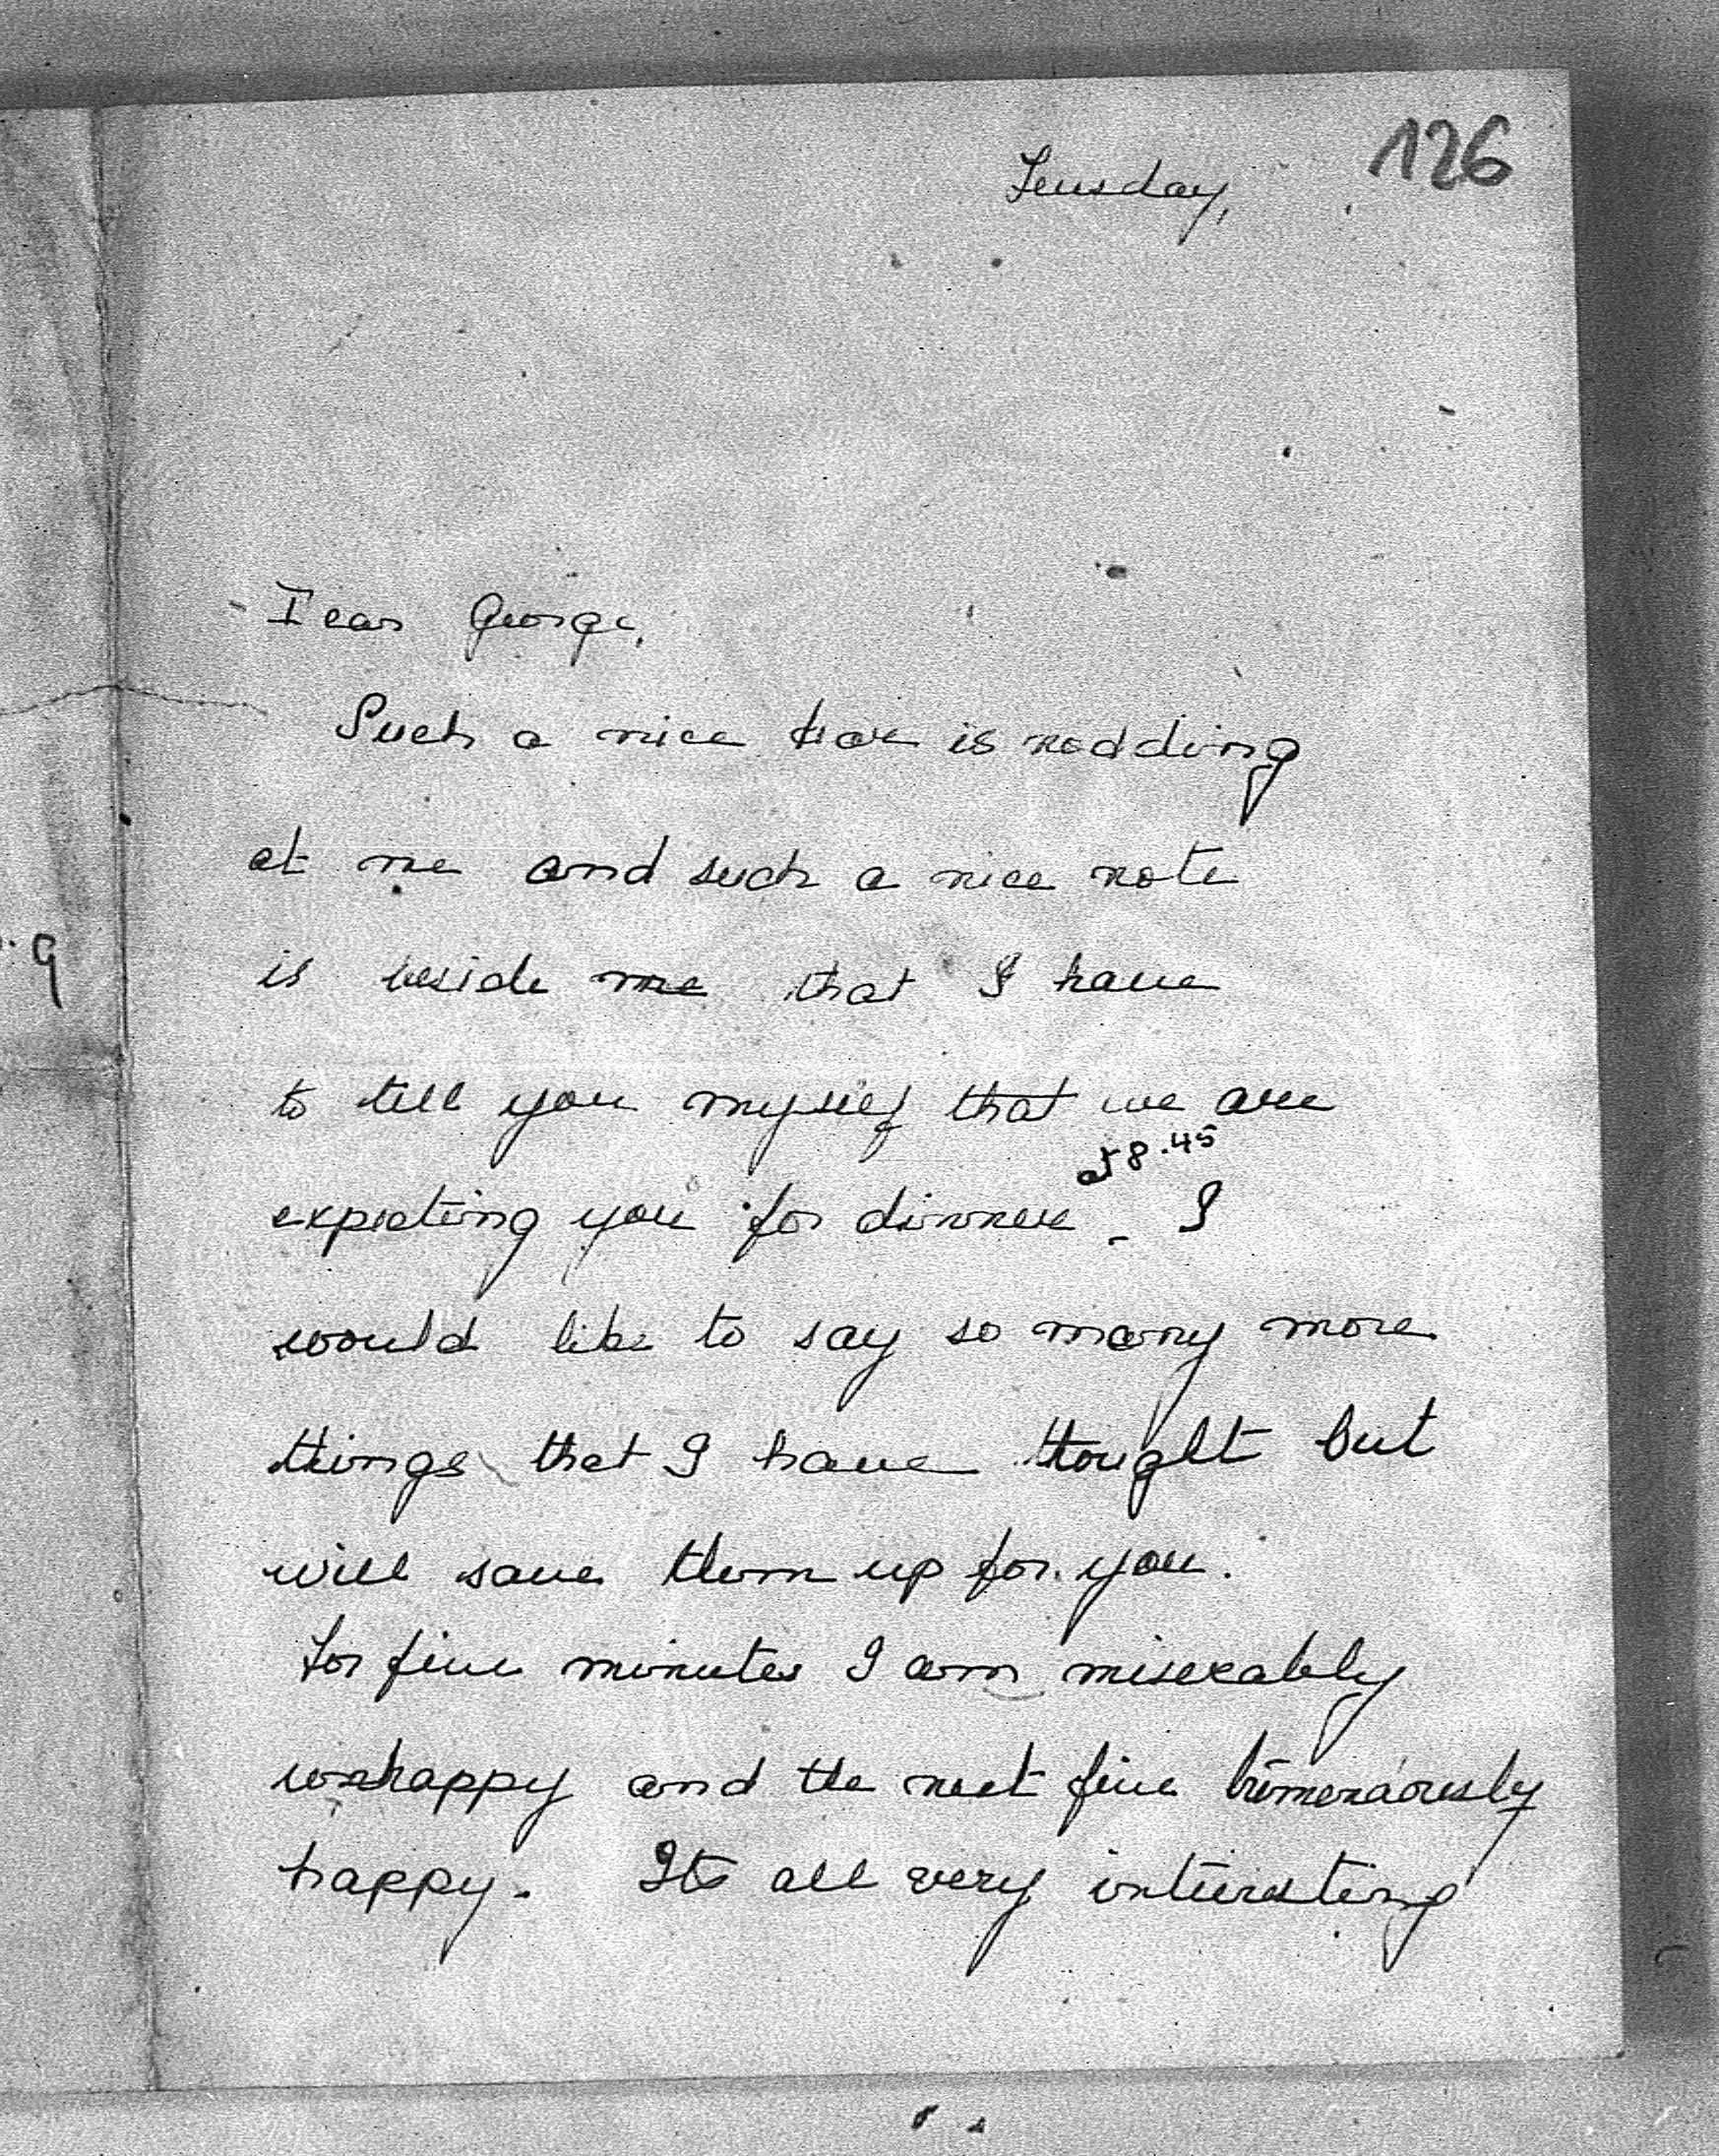 126
Teusday,
Dear George,
Such a nice is nodding
at me and such a nice note
is beside me that I have
to tell you myself that we are
at 8.45
expecting you for dinner - I
would like to say so many more
things that I have thought but
will save them up for you.
For five minutes I am miserably
unhappy and the next five
happy. Its all very interesting
9